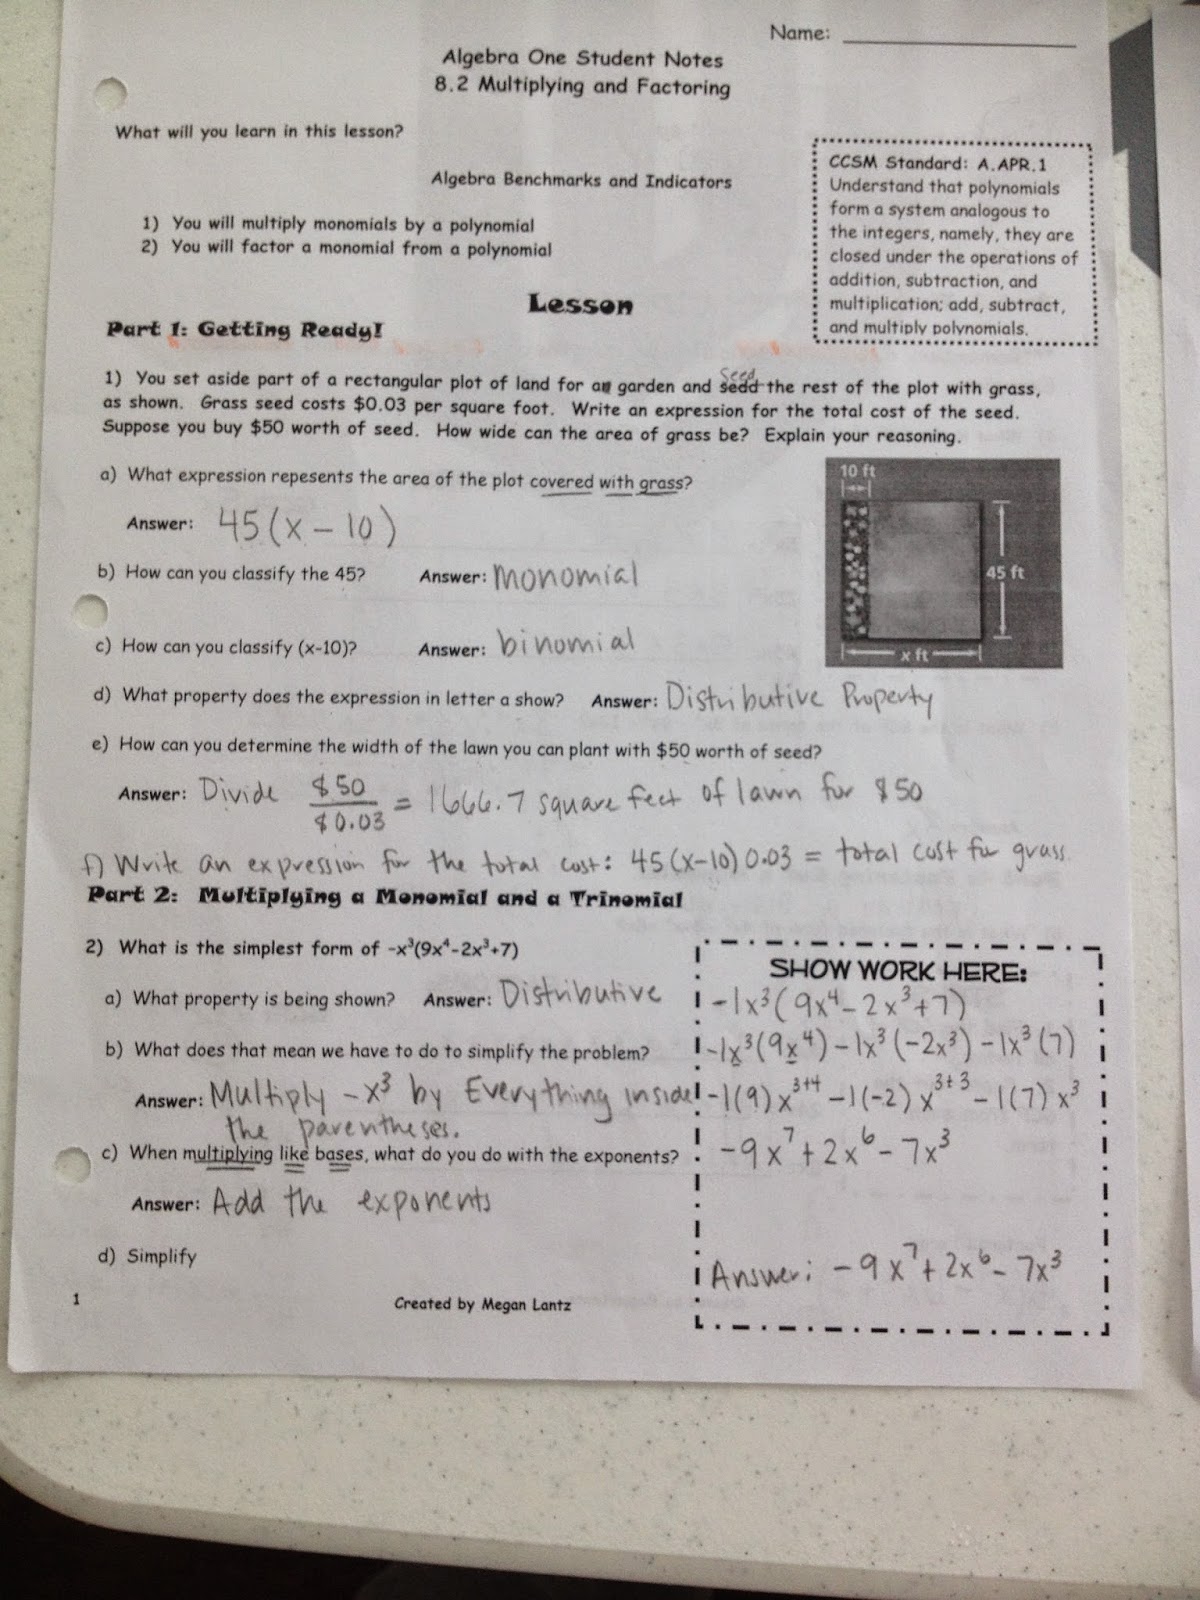 Name:
Algebra One Student Notes
8.2 Multiplying and Factoring
What will you learn in this lesson?
Algebra Benchmarks and Indicators
1) You will multiply monomials by a polynomial
2) You will factor a monomial from a polynomial
CCSM Standard: A.APR.1
Understand that polynomials
form a system analogous to
the integers, namely, they are
closed under the operations of
addition, subtraction, and
multiplication; add, subtract,
and multiply polynomials.
Lesson
Part 1: Getting Ready!
Seed
1) You set aside part of a rectangular plot of land for an garden and sedd the rest of the plot with grass,
as shown. Grass seed costs $0.03 per square foot. Write an expression for the total cost of the seed.
Suppose you buy $50 worth of seed. How wide can the area of grass be? Explain your reasoning.
a) What expression repesents the area of the plot covered with grass?
Answer: 45(x - 10)
10 ft
45 ft
x ft
b) How can you classify the 45? Answer: monomial
c) How can you classify (x-10)? Answer: binomial
d) What property does the expression in letter a show? Answer: Distributive Property
e) How can you determine the width of the lawn you can plant with $50 worth of seed?
Answer: Divide $50/$0.03 = 1666.7 square feet of lawn for $50
f) Write an expression for the total cost: 45(x-10)0.03 = total cost for grass.
Part 2: Multiplying a Monomial and a Trinomial
2) What is the simplest form of -x³(9x⁴-2x³+7)
a) What property is being shown? Answer: Distributive
b) What does that mean we have to do to simplify the problem?
Answer: Multiply -x³ by Everything inside
the parentheses.
c) When multiplying like bases, what do you do with the exponents?
Answer: Add the exponents
d) Simplify
SHOW WORK HERE:
-1x³(9x⁴-2x³+7)
-1x³(9x⁴)-1x³(-2x³)-1x³(7)
-1(9)x³⁺⁴-1(-2)x³⁺³-1(7)x³
-9x⁷+2x⁶-7x³
Answer: -9x⁷+2x⁶-7x³
1
Created by Megan Lantz